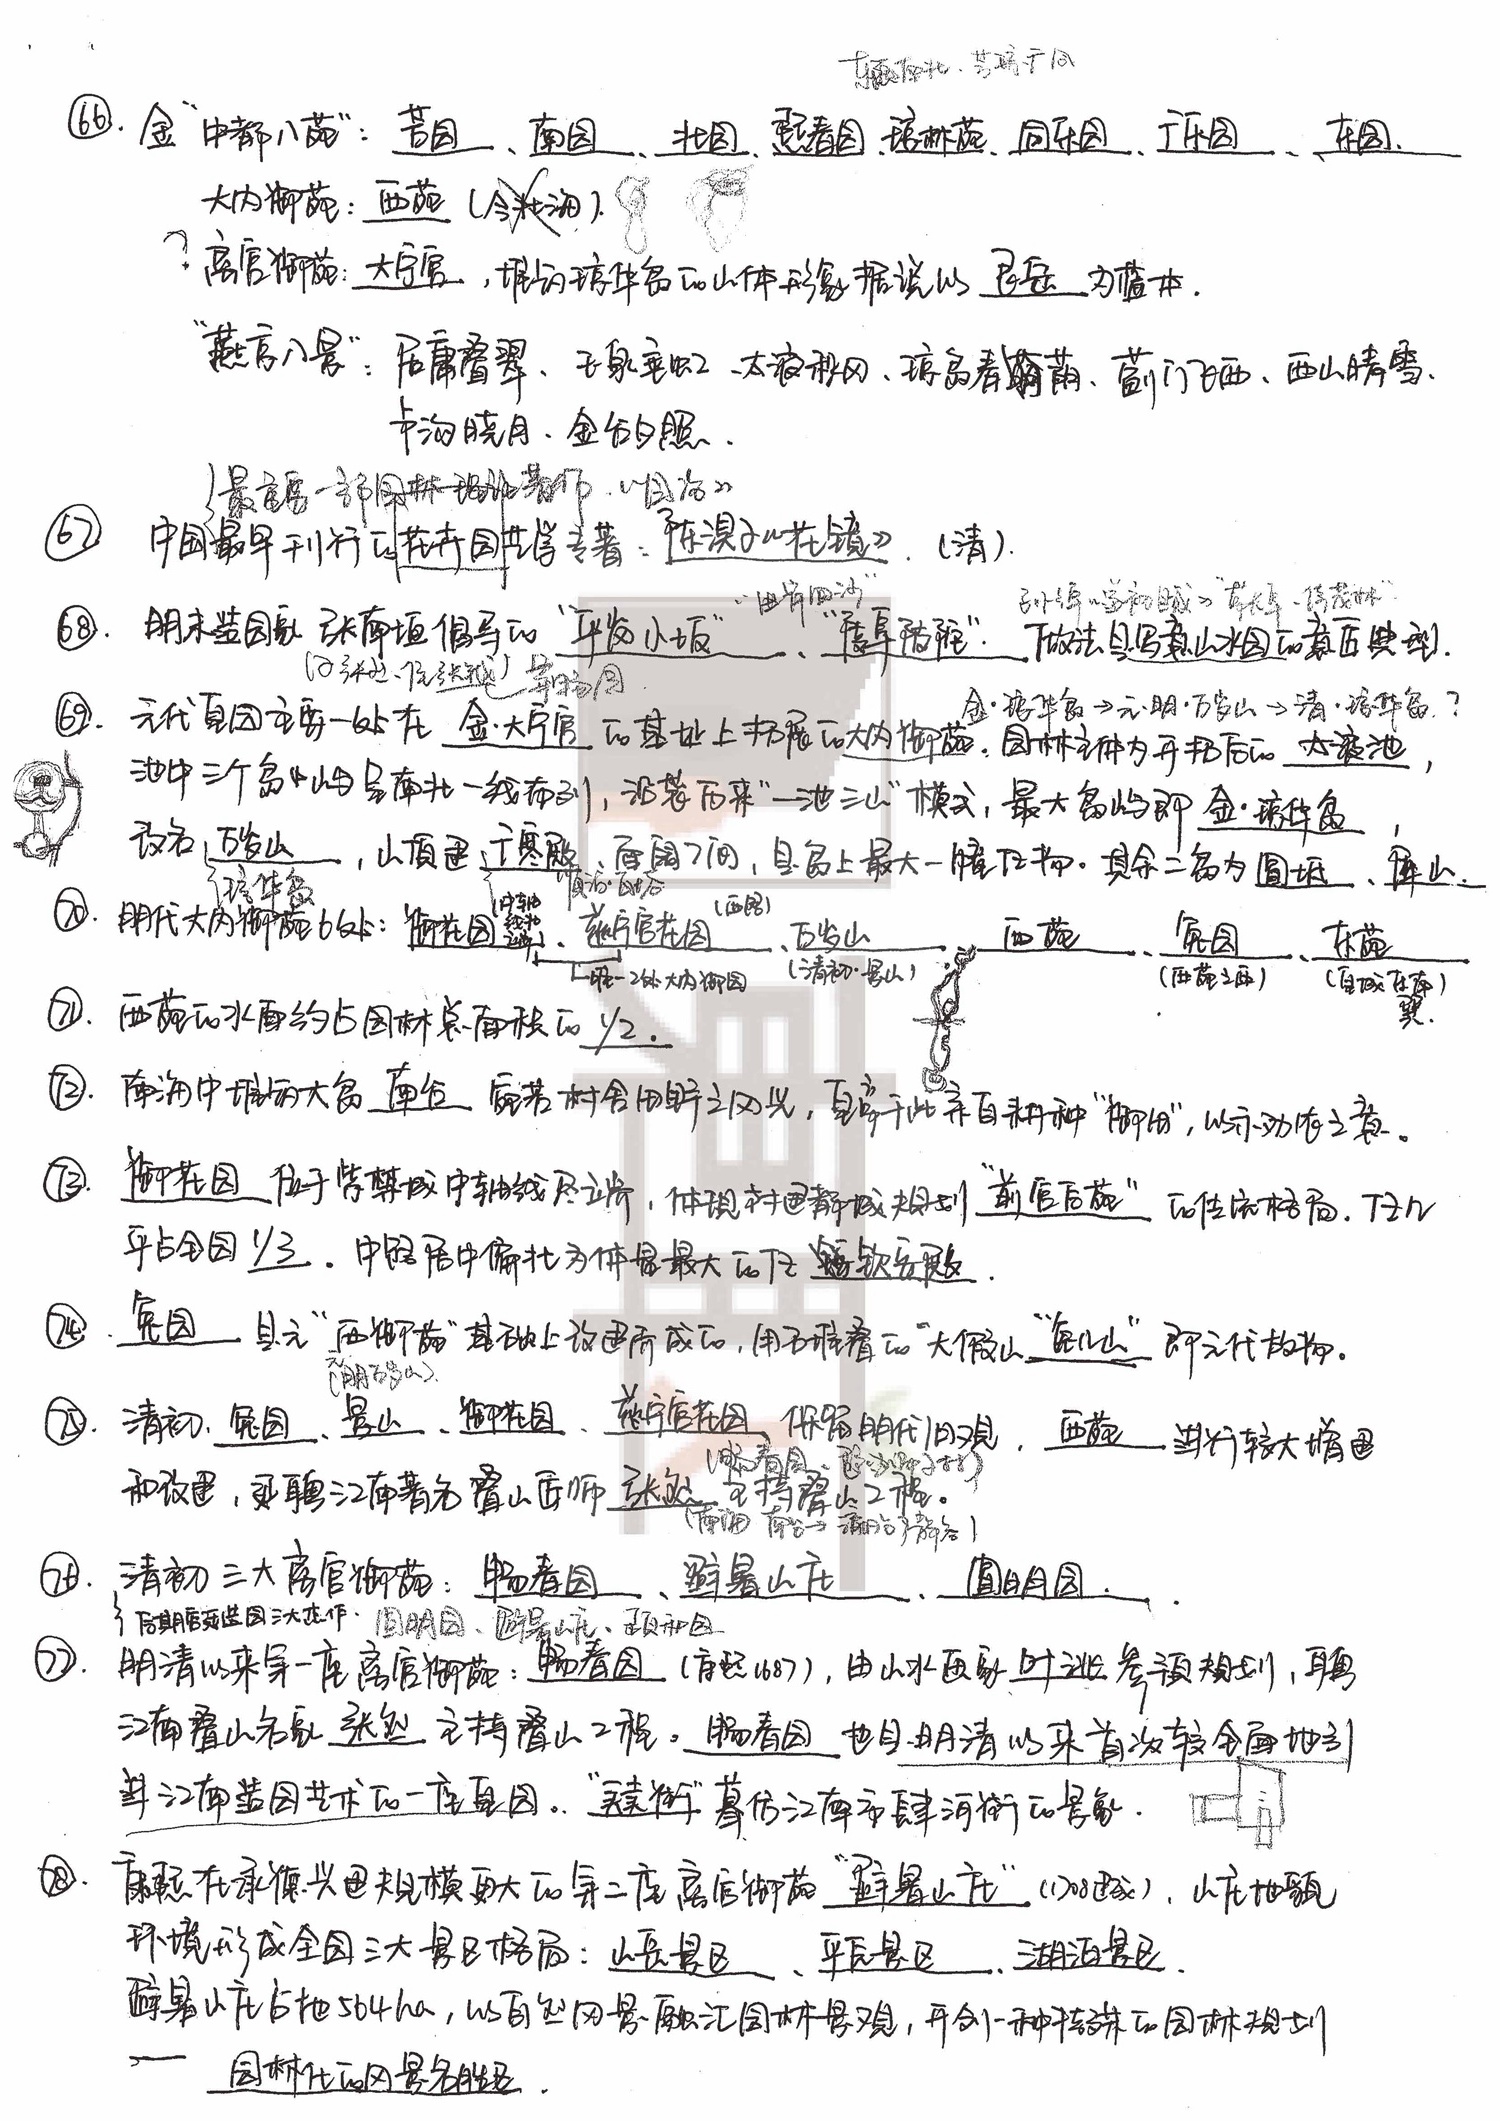 66. 金"中都八苑"：芳园、南园、北园、熙春园、琼林苑、同乐园、广乐园、东园.
大内御苑：西苑（今北海）.
? 离宫御苑：大宁宫，堆筑琼华岛的山体形象据说以艮岳为蓝本.
"燕京八景"：居庸叠翠、玉泉垂虹、太液秋风、琼岛春荫、蓟门飞雨、西山晴雪、
卢沟晓月、金台夕照.
67 中国最早刊行的花卉园艺学专著：陈淏子《花镜》.（清）.
68. 明末造园家张南垣倡导的"平岗小坂"、"陵阜陂陀".做法是写意山水园的意匠典型.
金·琼华岛→元·明·万岁山→清·琼华岛.？
69. 元代皇园主要一处在金·大宁宫的基址上拓展的大内御苑.园林主体为开拓后的太液池，
池中三个岛屿呈南北一线布列，沿袭历来"一池三山"模式，最大岛屿即金·琼华岛，
改名万岁山，山顶建广寒殿、面阔7间，是岛上最大一幢建物。其余二岛为圆坻、屏山.
琼华岛
（西路）
70. 明代大内御苑6处：御花园、慈宁宫花园、万岁山、西苑、兔园、东苑
（清初·景山） （西苑之西） （皇城东南）
71. 西苑的水面约占园林总面积的1/2.
72. 南海中堆筑大岛南台 宛若村舍田野之风光，皇帝于此亲自耕种"御田"，以示劝农之意。
73. 御花园 位于紫禁城中轴线尽端，体现封建都城规划"前宫后苑"的传统格局.
平占全园1/3。中路居中偏北为体量最大的 钦安殿.
74. 兔园 是元"西御苑"基础上改建而成的，用石堆叠的"大假山""兔儿山"即元代故物。
75. 清初.兔园、景山、御花园、慈宁宫花园、保留明代旧观，西苑 进行较大增建
和改建，延聘江南著名叠山匠师张然主持叠山工程。
76. 清初三大离宫御苑：畅春园、避暑山庄、圆明园.
后期宫廷造园三大杰作.圆明园、避暑山庄、颐和园
77. 明清以来第一座离宫御苑：畅春园（康熙1687），由山水画家叶洮参预规划，聘
江南叠山名家张然主持叠山工程。畅春园也是明清以来首次较全面地引
进江南造园艺术的一座皇园。"买卖街"摹仿江南市肆河街的景象.
78. 康熙在承德兴建规模更大的第二座离宫御苑"避暑山庄"（1708建成），山庄地貌
环境形成全园三大景区格局：山岳景区、平原景区、湖泊景区.
避暑山庄占地564ha，以自然风景融汇园林景观，开创一种特殊的园林规划
— 园林化的风景名胜区.